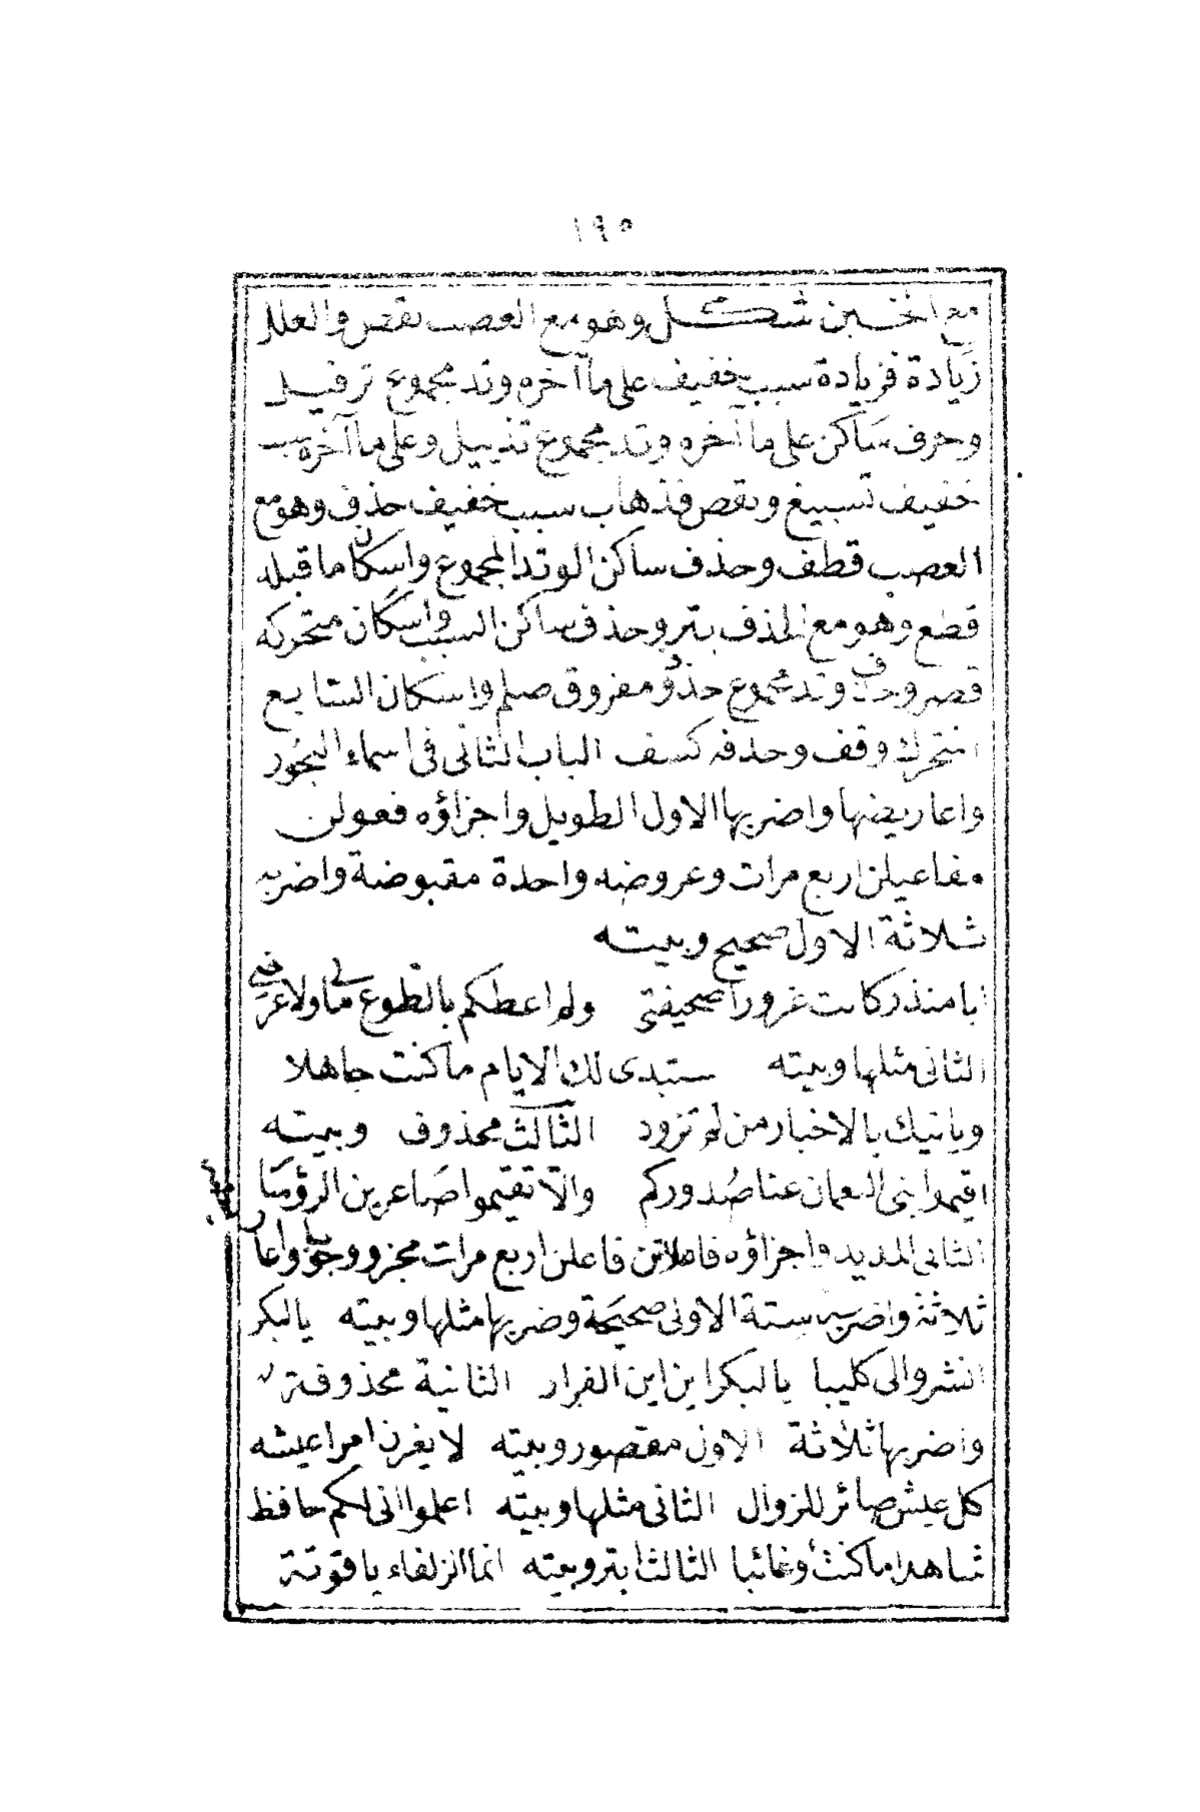 ١٩٥
مع الخبن شكل وهو مع العصب نقص والعلل
زيادة فزيادة سبب خفيف على ما آخره وتد مجموع ترفيل
وحرف ساكن على ما آخره وتد مجموع تذييل وعلى ما آخره سبب
خفيف تسبيغ ونقص فذهاب سبب خفيف حذف وهو مع
العصب قطف وحذف ساكن الوتد المجموع واسكان ما قبله
قطع وهو مع الحذف بتر وحذف ساكن السبب واسكان متحركه
قصر وحذف وتد مجموع حذذ ومفروق صلم واسكان السابع
المتحرك وقف وحذفه كسف الباب الثانى فى اسماء البحور
واعاريضها واضربها الاول الطويل واجزاؤه فعولن
مفاعيلن اربع مرات وعروضه واحدة مقبوضة واضربه
ثلاثة الاول صحيح وبيته
ابا منذر كانت غرورا صحيفتى ولم اعطكم بالطوع مالى ولا عرضى
الثانى مثلها وبيته ستبدى لك الايام ما كنت جاهلا
وياتيك بالاخبار من لم تزود الثالث محذوف وبيته
اقيموا بنى النعمان عنا صدوركم والا تقيموا صاغرين الرؤسا
الثانى المديد واجزاؤه فاعلاتن فاعلن اربع مرات مجزو وجوبا واعاريضه
ثلاثة واضربه ستة الاولى صحيحة وضربها مثلها وبيته يالبكر
انشروا لى كليبا يالبكر اين اين الفرار الثانية محذوفة
واضربها ثلاثة الاول مقصور وبيته لا يغرن امرا عيشه
كل عيش صائر للزوال الثانى مثلها وبيته اعلموا انى لكم حافظ
شاهدا ما كنت او غائبا الثالث ابتر وبيته انما الزلفاء ياقوتة